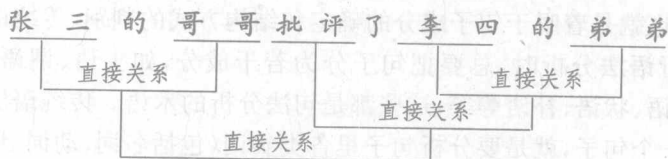 张三的哥哥批评了李四的弟弟
直接关系 直接关系
直接关系
直接关系